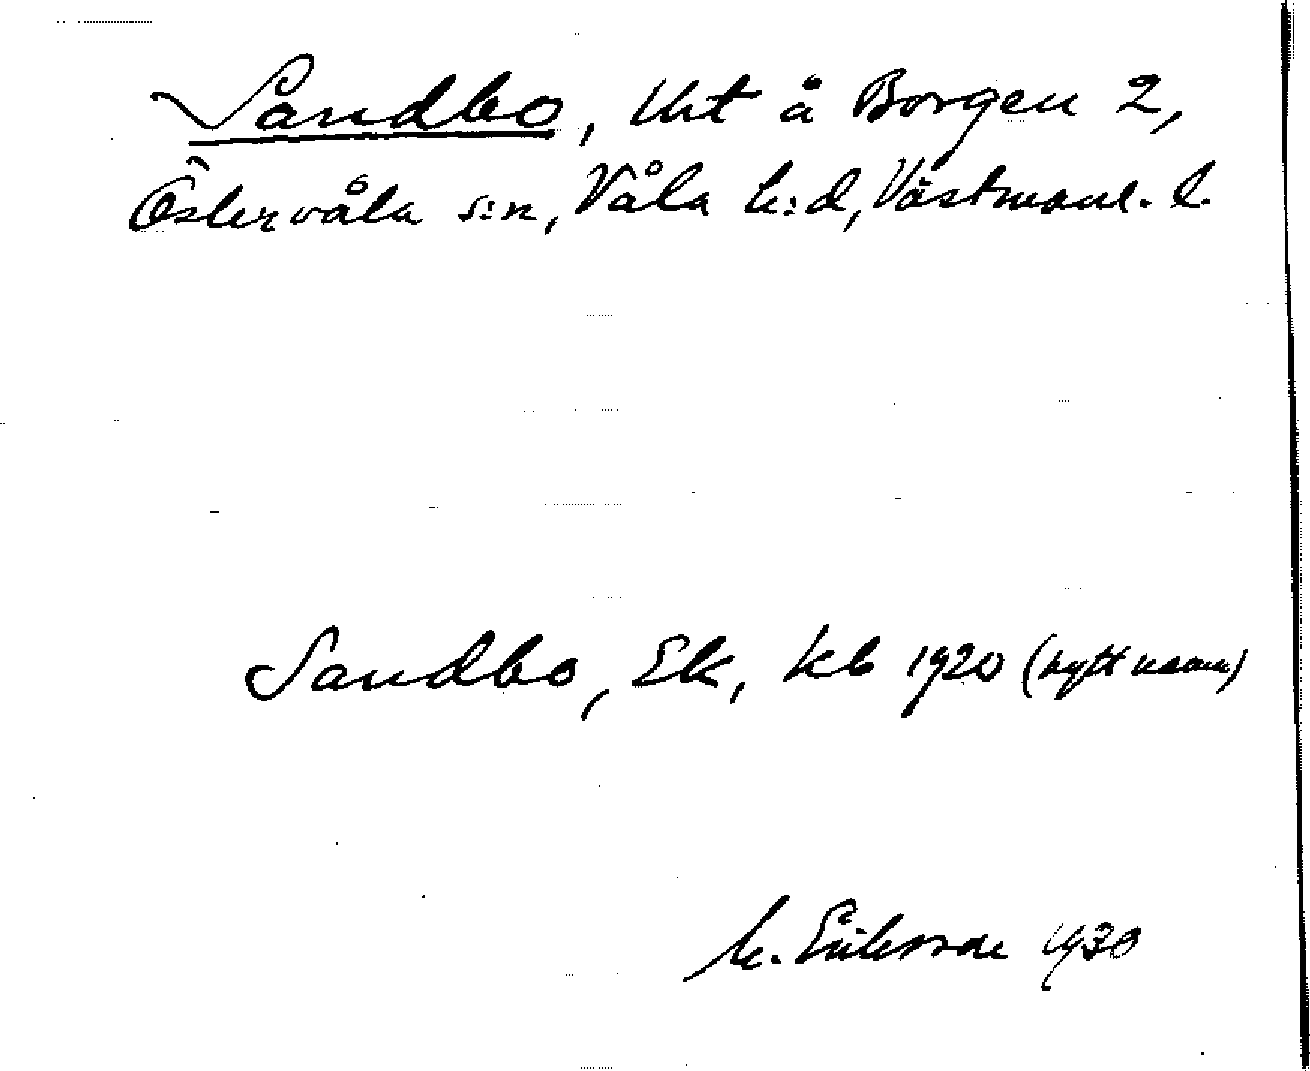 Sandbo, Uht å Borgen 2,
Östervåla s:n, Våla h:d, Västmanl. l.
Sandbo, Ek, kb 1920 (nytt namn)
M. Eriksson 1930